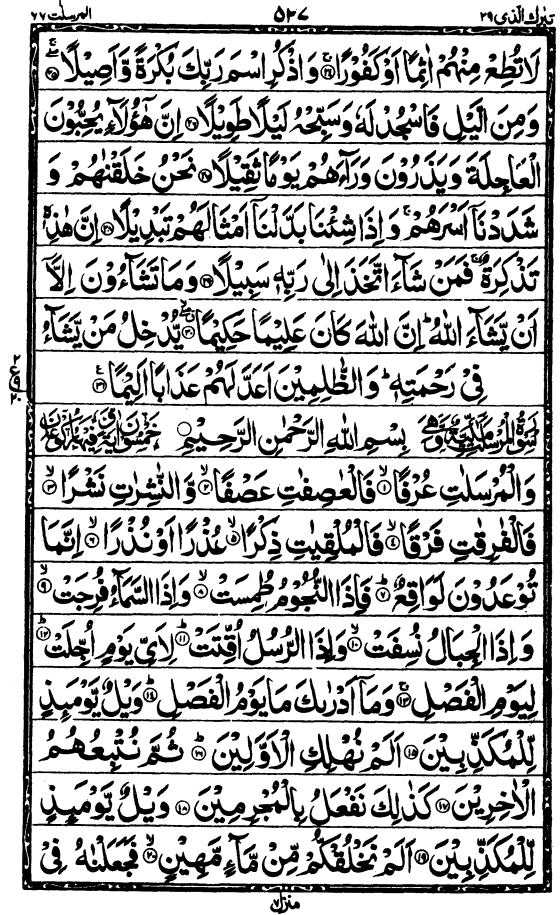 تبٰرك الذی ۲۹ ۵۲۷ المرسلٰت ۷۷
لَا تُطِعْ مِنْهُمْ اٰثِمًا اَوْ كَفُوْرًا ۚ‏﴿۲۴﴾ وَ اذْكُرِ اسْمَ رَبِّكَ بُكْرَةً وَّ اَصِیْلًا ﴿۲۵﴾
وَ مِنَ الَّیْلِ فَاسْجُدْ لَهٗ وَ سَبِّحْهُ لَیْلًا طَوِیْلًا ﴿۲۶﴾ اِنَّ هٰۤؤُلَآءِ یُحِبُّوْنَ
الْعَاجِلَةَ وَ یَذَرُوْنَ وَرَآءَهُمْ یَوْمًا ثَقِیْلًا ﴿۲۷﴾ نَحْنُ خَلَقْنٰهُمْ وَ
شَدَدْنَاۤ اَسْرَهُمْ ۚ وَ اِذَا شِئْنَا بَدَّلْنَاۤ اَمْثَالَهُمْ تَبْدِیْلًا ﴿۲۸﴾ اِنَّ هٰذِهٖ
تَذْكِرَةٌ ۚ فَمَنْ شَآءَ اتَّخَذَ اِلٰى رَبِّهٖ سَبِیْلًا ﴿۲۹﴾ وَ مَا تَشَآءُوْنَ اِلَّاۤ
اَنْ یَّشَآءَ اللّٰهُ ؕ اِنَّ اللّٰهَ كَانَ عَلِیْمًا حَكِیْمًا ﴿۳۰﴾ یُّدْخِلُ مَنْ یَّشَآءُ
فِیْ رَحْمَتِهٖ ؕ وَ الظّٰلِمِیْنَ اَعَدَّ لَهُمْ عَذَابًا اَلِیْمًا ﴿۳۱﴾
سُوْرَةُ الْمُرْسَلٰتِ مَكِّیَّةٌ وَّهِیَ بِسْمِ اللّٰهِ الرَّحْمٰنِ الرَّحِیْمِ خَمْسُوْنَ اٰیَةً وَّفِیْهَا رُكُوْعَانِ
وَ الْمُرْسَلٰتِ عُرْفًا ﴿۱﴾ فَالْعٰصِفٰتِ عَصْفًا ﴿۲﴾ وَّ النّٰشِرٰتِ نَشْرًا ﴿۳﴾
فَالْفٰرِقٰتِ فَرْقًا ﴿۴﴾ فَالْمُلْقِیٰتِ ذِكْرًا ﴿۵﴾ عُذْرًا اَوْ نُذْرًا ﴿۶﴾ اِنَّمَا
تُوْعَدُوْنَ لَوَاقِعٌ ﴿۷﴾ فَاِذَا النُّجُوْمُ طُمِسَتْ ﴿۸﴾ وَ اِذَا السَّمَآءُ فُرِجَتْ ﴿۹﴾
وَ اِذَا الْجِبَالُ نُسِفَتْ ﴿۱۰﴾ وَ اِذَا الرُّسُلُ اُقِّتَتْ ﴿۱۱﴾ لِاَیِّ یَوْمٍ اُجِّلَتْ ﴿۱۲﴾
لِیَوْمِ الْفَصْلِ ﴿۱۳﴾ وَ مَاۤ اَدْرٰىكَ مَا یَوْمُ الْفَصْلِ ﴿۱۴﴾ وَیْلٌ یَّوْمَىِٕذٍ
لِّلْمُكَذِّبِیْنَ ﴿۱۵﴾ اَلَمْ نُهْلِكِ الْاَوَّلِیْنَ ﴿۱۶﴾ ثُمَّ نُتْبِعُهُمُ
الْاٰخِرِیْنَ ﴿۱۷﴾ كَذٰلِكَ نَفْعَلُ بِالْمُجْرِمِیْنَ ﴿۱۸﴾ وَیْلٌ یَّوْمَىِٕذٍ
لِّلْمُكَذِّبِیْنَ ﴿۱۹﴾ اَلَمْ نَخْلُقْكُّمْ مِّنْ مَّآءٍ مَّهِیْنٍ ﴿۲۰﴾ فَجَعَلْنٰهُ فِیْ
منزل ۷